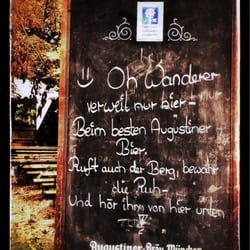 Oh Wanderer
verweil nur hier -
Beim besten Augustiner
Bier.
Ruft auch der Berg, bewahr
die Ruh -
Und hör ihm von hier unten
Augustiner-Bräu München